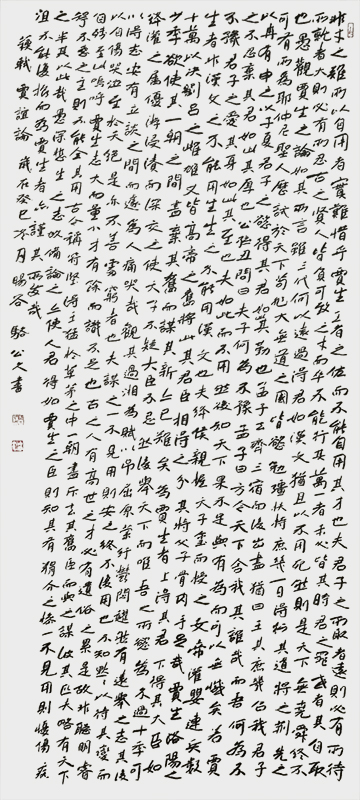 非才之難所以自用者實難惜乎賈生王者之佐而不能自用其才也夫君子之所取者遠則必有所待
所就者大則必有所忍古之賢人皆負可致之才而卒不能行其萬一者未必皆其時君之罪或者其自取
也愚觀賈生之論如其所言雖三代何以遠過得君如漢文猶且以不用死然則是天下無堯舜終不
可有所為耶仲尼聖人歷試於天下苟非大無道之國皆欲勉強扶持庶幾一日得行其道將之荊先之
以冉有申之以子夏君子之欲得其君如此其勤也孟子去齊三宿而後出晝猶曰王其庶幾召我君子
之不忍棄其君如此其厚也公孫丑問曰夫子何為不豫孟子曰方今天下舍我其誰哉而吾何為不
豫君子之愛其身如此其至也夫如此而不用然後知天下果不足與有為而可以無憾矣若賈
生者非漢文之不能用生生之不能用漢文也夫絳侯親握天子璽而授之文帝灌嬰連兵數
十萬以決劉呂之雌雄又皆高帝之舊將此其君臣相得之分豈特父子骨肉手足哉賈生洛陽之
少年欲使其一朝之間盡棄其舊而謀其新亦已難矣為賈生者上得其君下得其大臣如
絳灌之屬優游浸漬而深交之使天子不疑大臣不忌然後舉天下而唯吾之所欲為不過十年可
以得志安有立談之間而遽為人痛哭哉觀其過湘為賦以弔屈原縈紆鬱悶趯然有遠舉之志其後
以自傷哭泣至於夭絕是亦不善處窮者也夫謀之一不見用則安知終不復用也不知默默以待其變而
自殘至此嗚呼賈生志大而量小才有餘而識不足也古之人有高世之才必有遺俗之累是故非聰明睿
智不惑之主則不能全其用古今稱苻堅得王猛於草茅之中一朝盡斥去其舊臣而與之謀彼其匹夫略有天下
之半其以此哉愚深悲生之志故備論之亦使人君得如賈生之臣則知其有狷介之操一不見用則憂傷病
沮不能復振而為賈生者亦謹其所發哉
蘇軾 賈誼論 歲在癸巳冬月陽谷 駱公大書